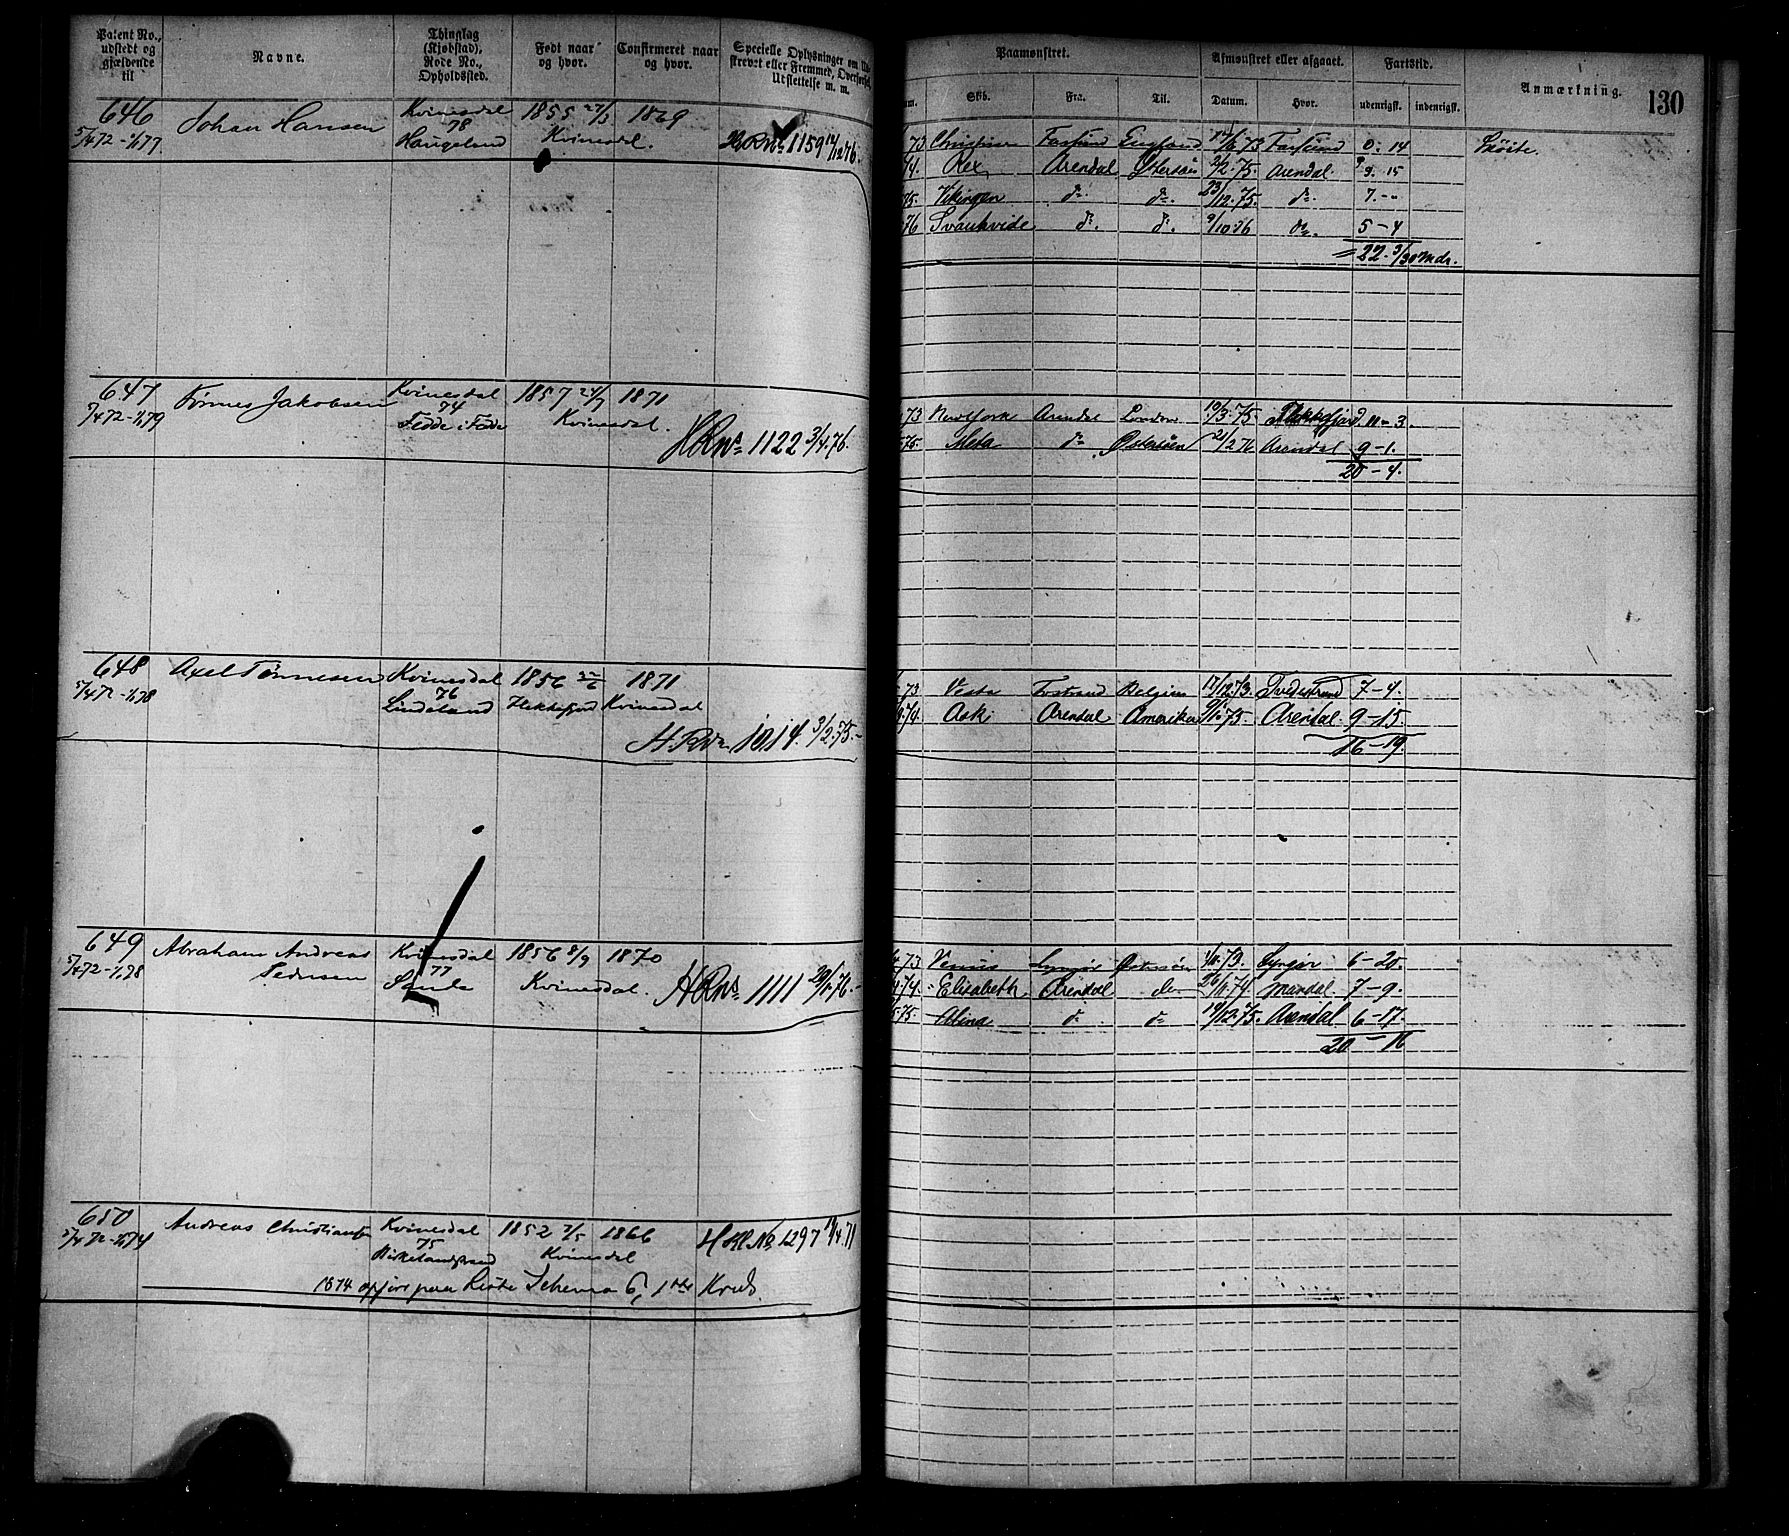 Patent No., udstedt og gjældende til
Navne.
Thinglag (Kjøbstad), Rode No., Opholdssted.
Født naar og hvor.
Confirmeret naar og hvor.
Specielle Oplysninger om
eller Fremmed,
Udslettelse m. m.
Paamønstret.
Skib.
Fra.
Til.
Afmønstret eller afgaaet.
Datum.
Hvor.
Fartstid.
udenrigsk.
indenrigsk.
Anmærkning.
130
646 Johan Hansen Kvinesdal 1855 27/3 1869
5/4 72 - 1/1 77. 78 Haugeland Kvinesdal. 1159 76.
73 Farsund England 73 Farsund 0. 14 Skøite.
Rex Arendal Østersøen 2/2 75. Arendal. 9. 15
75. Vikingen do. do. 23/12. 75. do. 7. -
76 Svanhvide do. do. 9/10 76 do. 5 - 4
= 22. 3/30 Mdr.
647 Tørnes Jakobsen Kvinesdal 1857 24/7 1871
5/4 72 - 1/1 79 74 Fedde i Fede Kvinesdal.
HRno 1122 3/4. 76.
73 New York Arendal London 10/3. 75. Flekkefjord 11 - 3.
75. Meta do Østersøen 21/2 76 Arendal 9 - 1.
20 - 4.
648 Axel Tønnesen Kvinesdal 1856 1871
5/4 72 - 1/1 78 76 Lindeland Flekkefjord Kvinesdal
1014. 3/2. 75.
73 Vesta Belgien 17/12 73. Tvedestrand 7 - 4.
74. Ask Arendal Amerika 75. Arendal. 9 - 15.
16 - 19.
649 Abraham Andreas Kvinesdal 1856 8/9 1870
5/4 72 - 1/1 78 Pedersen 77 Kvinesdal.
HRno 1111 76.
73 Venus Lyngør Østersøen 73. Lyngør 6 - 20.
74. Elisabeth Arendal do 74 Mandal 7 - 9.
75. Alina do do 75. Arendal 6 - 17.
20 - 16
650 Andreas Christiansen Kvinesdal 1852 2/5 1866 1297 71
5/4 72 - 1/1 74 75 Birkelandstrand Kvinesdal
1874 opført paa Liste Schema 6, 1ste Kreds.